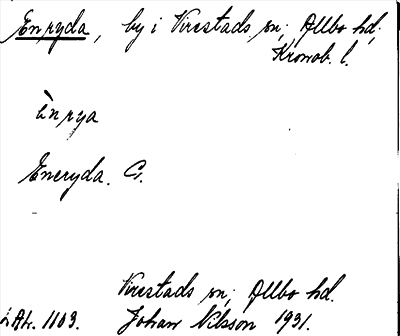 Enryda, by i Virestads sn; Allbo hd;
Kronob. l.
ènrya
Eneryda. G.
Virestads sn; Allbo hd.
LAL. 1103. Johan Nilsson 1931.